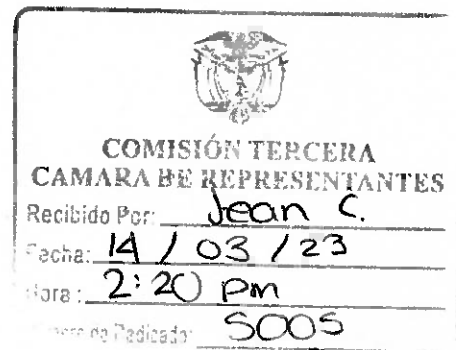 COMISIÓN TERCERA
CAMARA DE REPRESENTANTES
Recibido Por: Jean C.
Fecha: 14 / 03 / 23
Hora: 2:20 pm
de Radicado: 5005